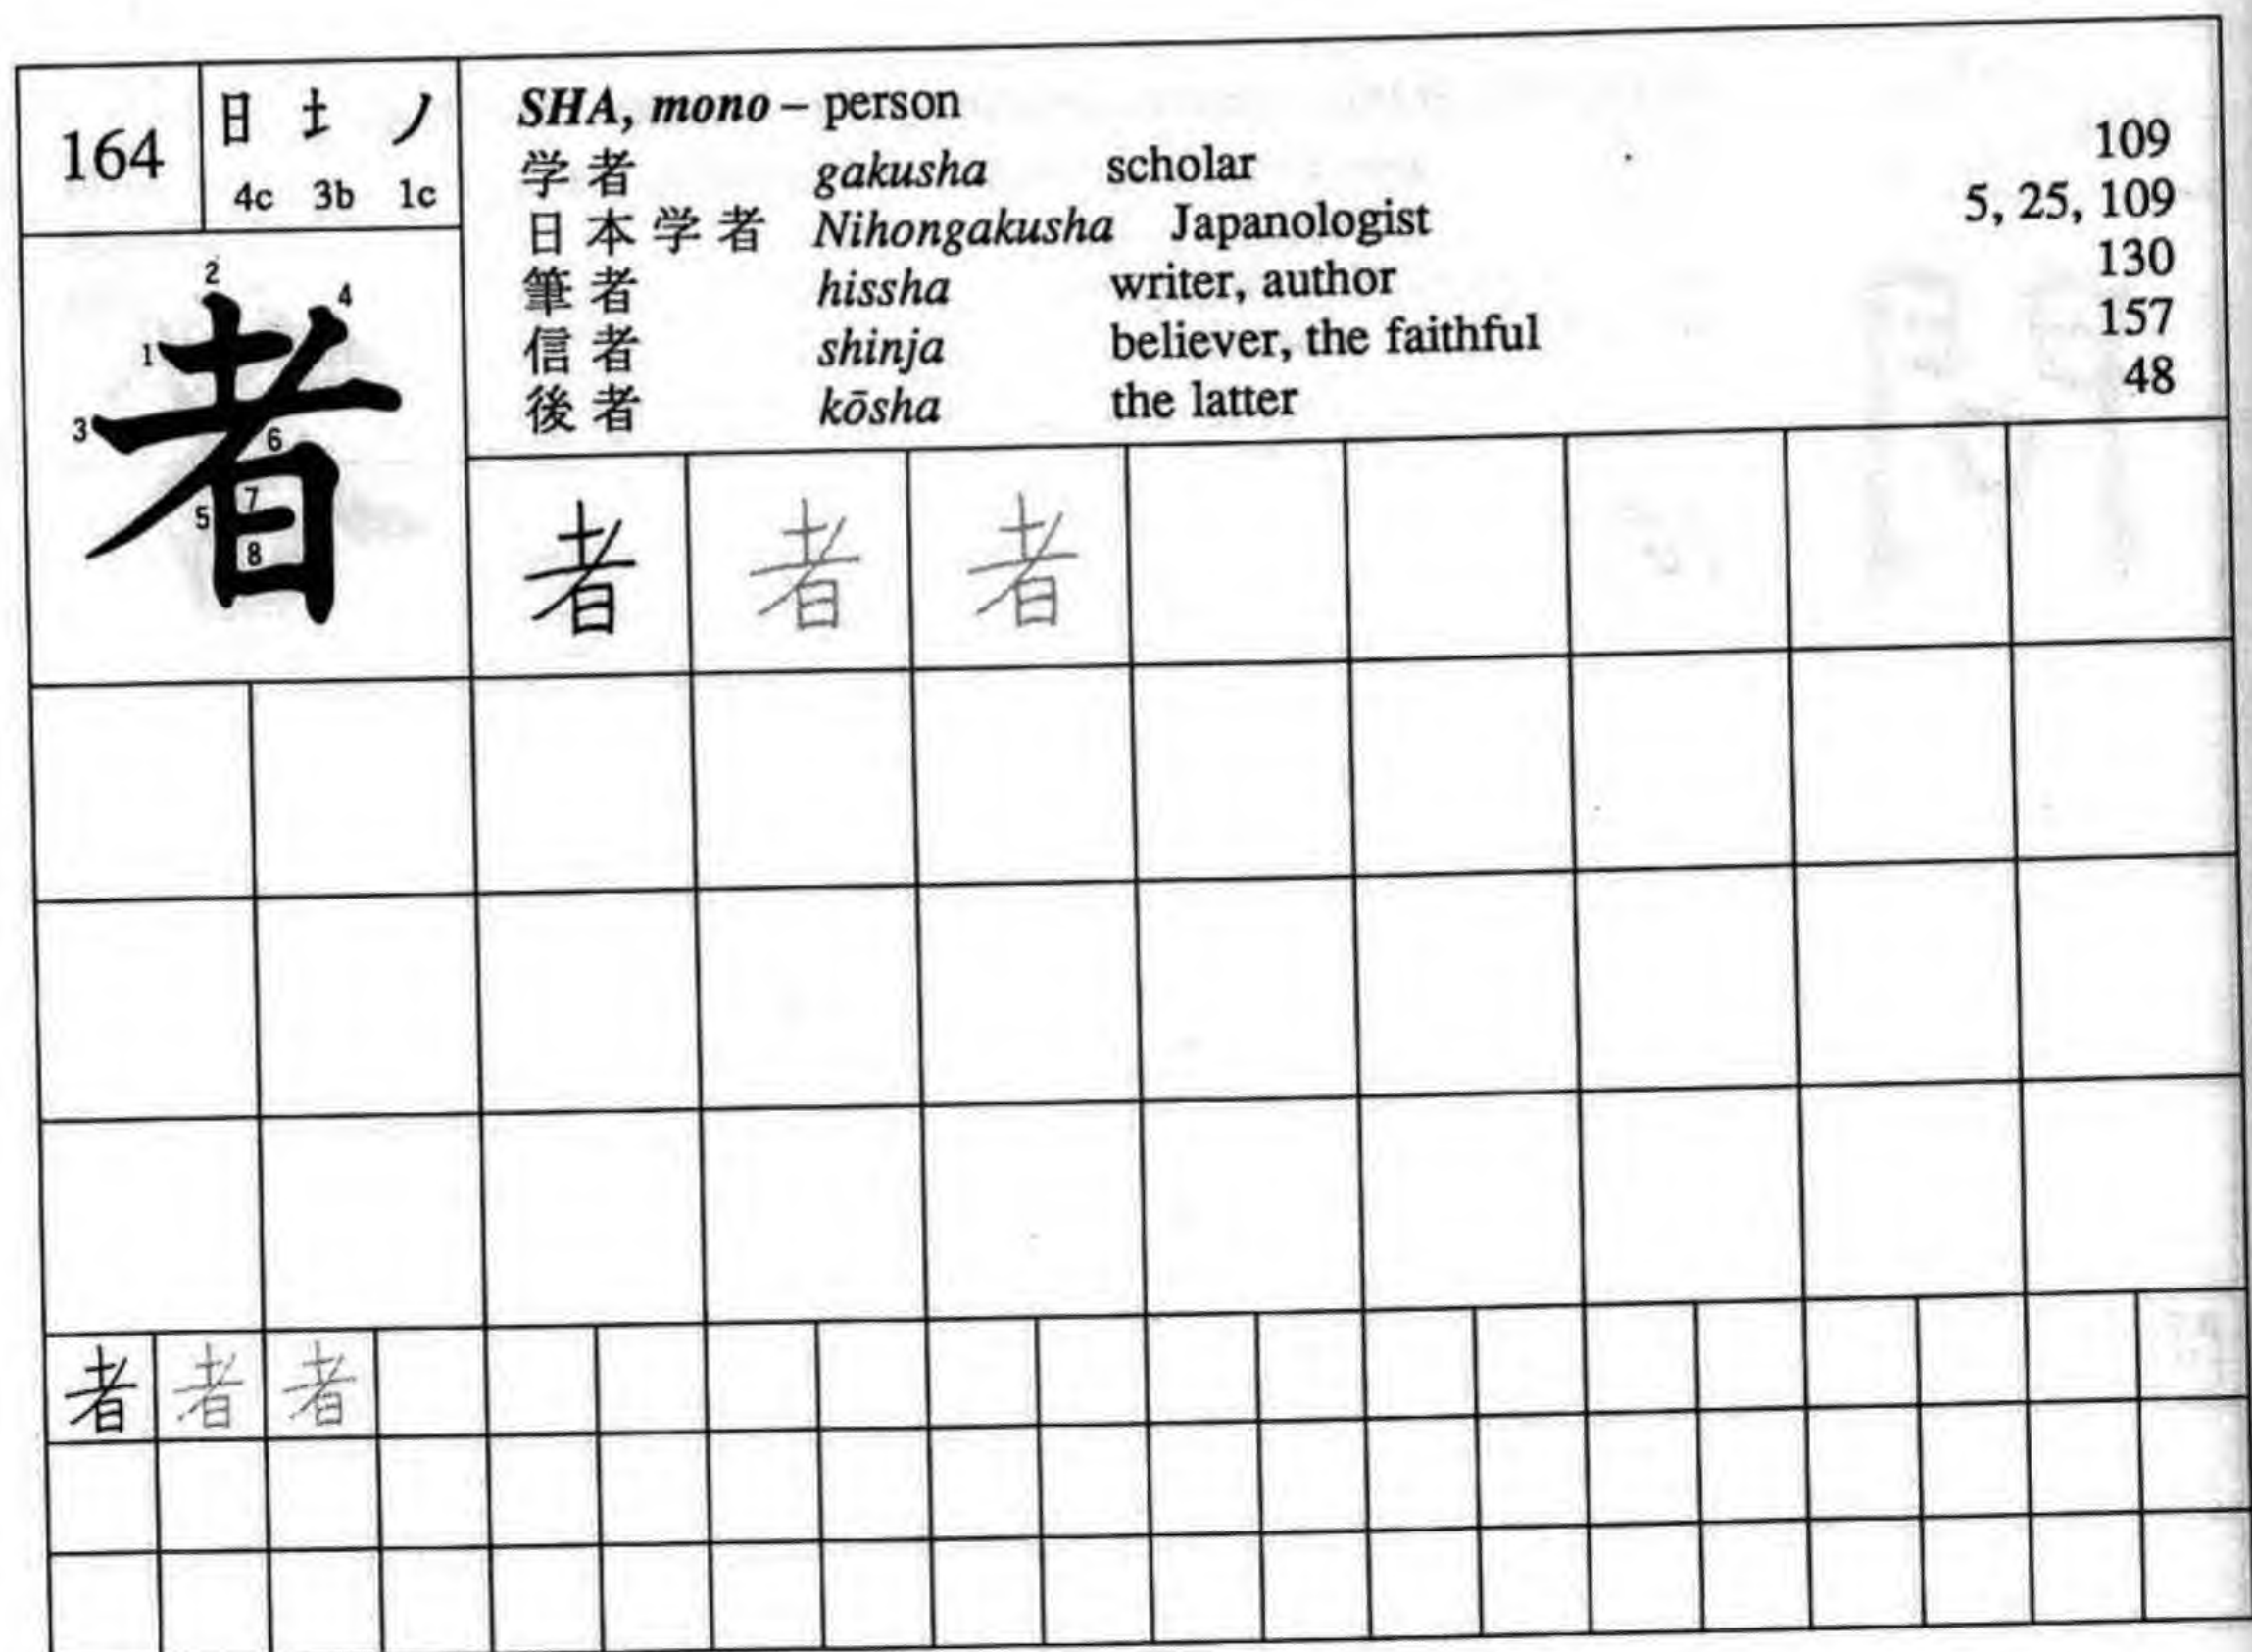 164
日 扌 ノ
4c 3b 1c
SHA, mono – person
学者 gakusha scholar 109
日本学者 Nihongakusha Japanologist 5, 25, 109
筆者 hissha writer, author 130
信者 shinja believer, the faithful 157
後者 kōsha the latter 48
2
4
1
3
6
7
5
8
者
者 者 者
者 者 者